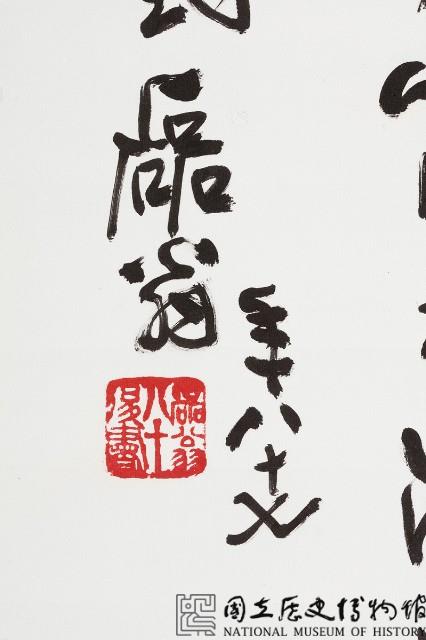 年八十七
磊翁
磊翁八十後書
國立歷史博物館
NATIONAL MUSEUM OF HISTORY